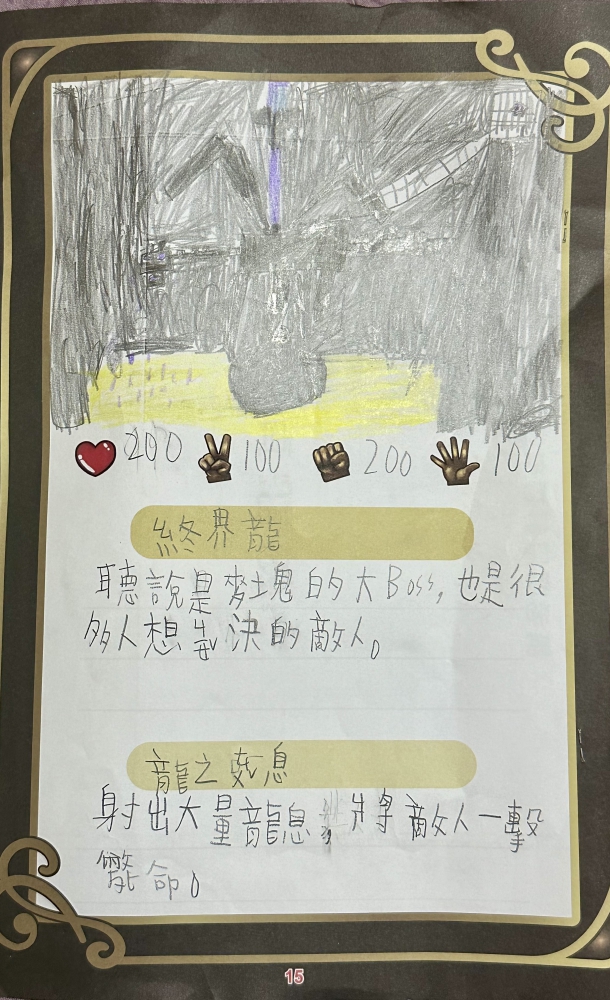 200 100 200 100
終界龍
聽說是麥塊的大Boss,也是很
多人想 決的敵人。
龍之 息
射出大量龍息,將敵人一擊
斃命。
15